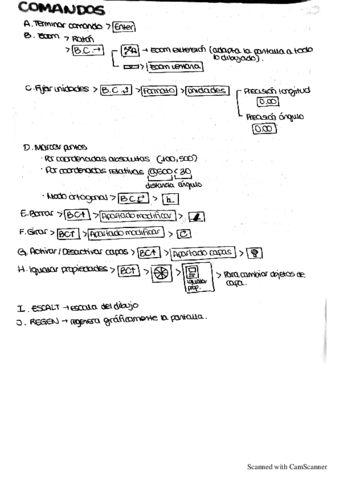 COMANDOS
A. Terminar comando > Enter
B. Zoom > Ratón
> B.C.→ → Zoom extensión (adapta la pantalla a todo lo dibujado).
Zoom ventana
C. Fijar unidades > B.C.↑ > Formato > Unidades
Precisión longitud
0.00
Precisión ángulo
0.00
D. Marcar puntos
· Por coordenadas absolutas (400,500)
· Por coordenadas relativas @600<30
distancia ángulo
· Modo ortogonal > B.C.← >
E. Borrar > BC↑ > Apartado modificar >
F. Girar > BC↑ > Apartado modificar >
G. Activar/Desactivar capas > BC↑ > Apartado capas >
H. Igualar propiedades > BC↑ > > Igualar prop. > Para cambiar objetos de capa.
I. ESCALT → escala del dibujo
J. REGEN → regenera gráficamente la pantalla.
Scanned with CamScanner